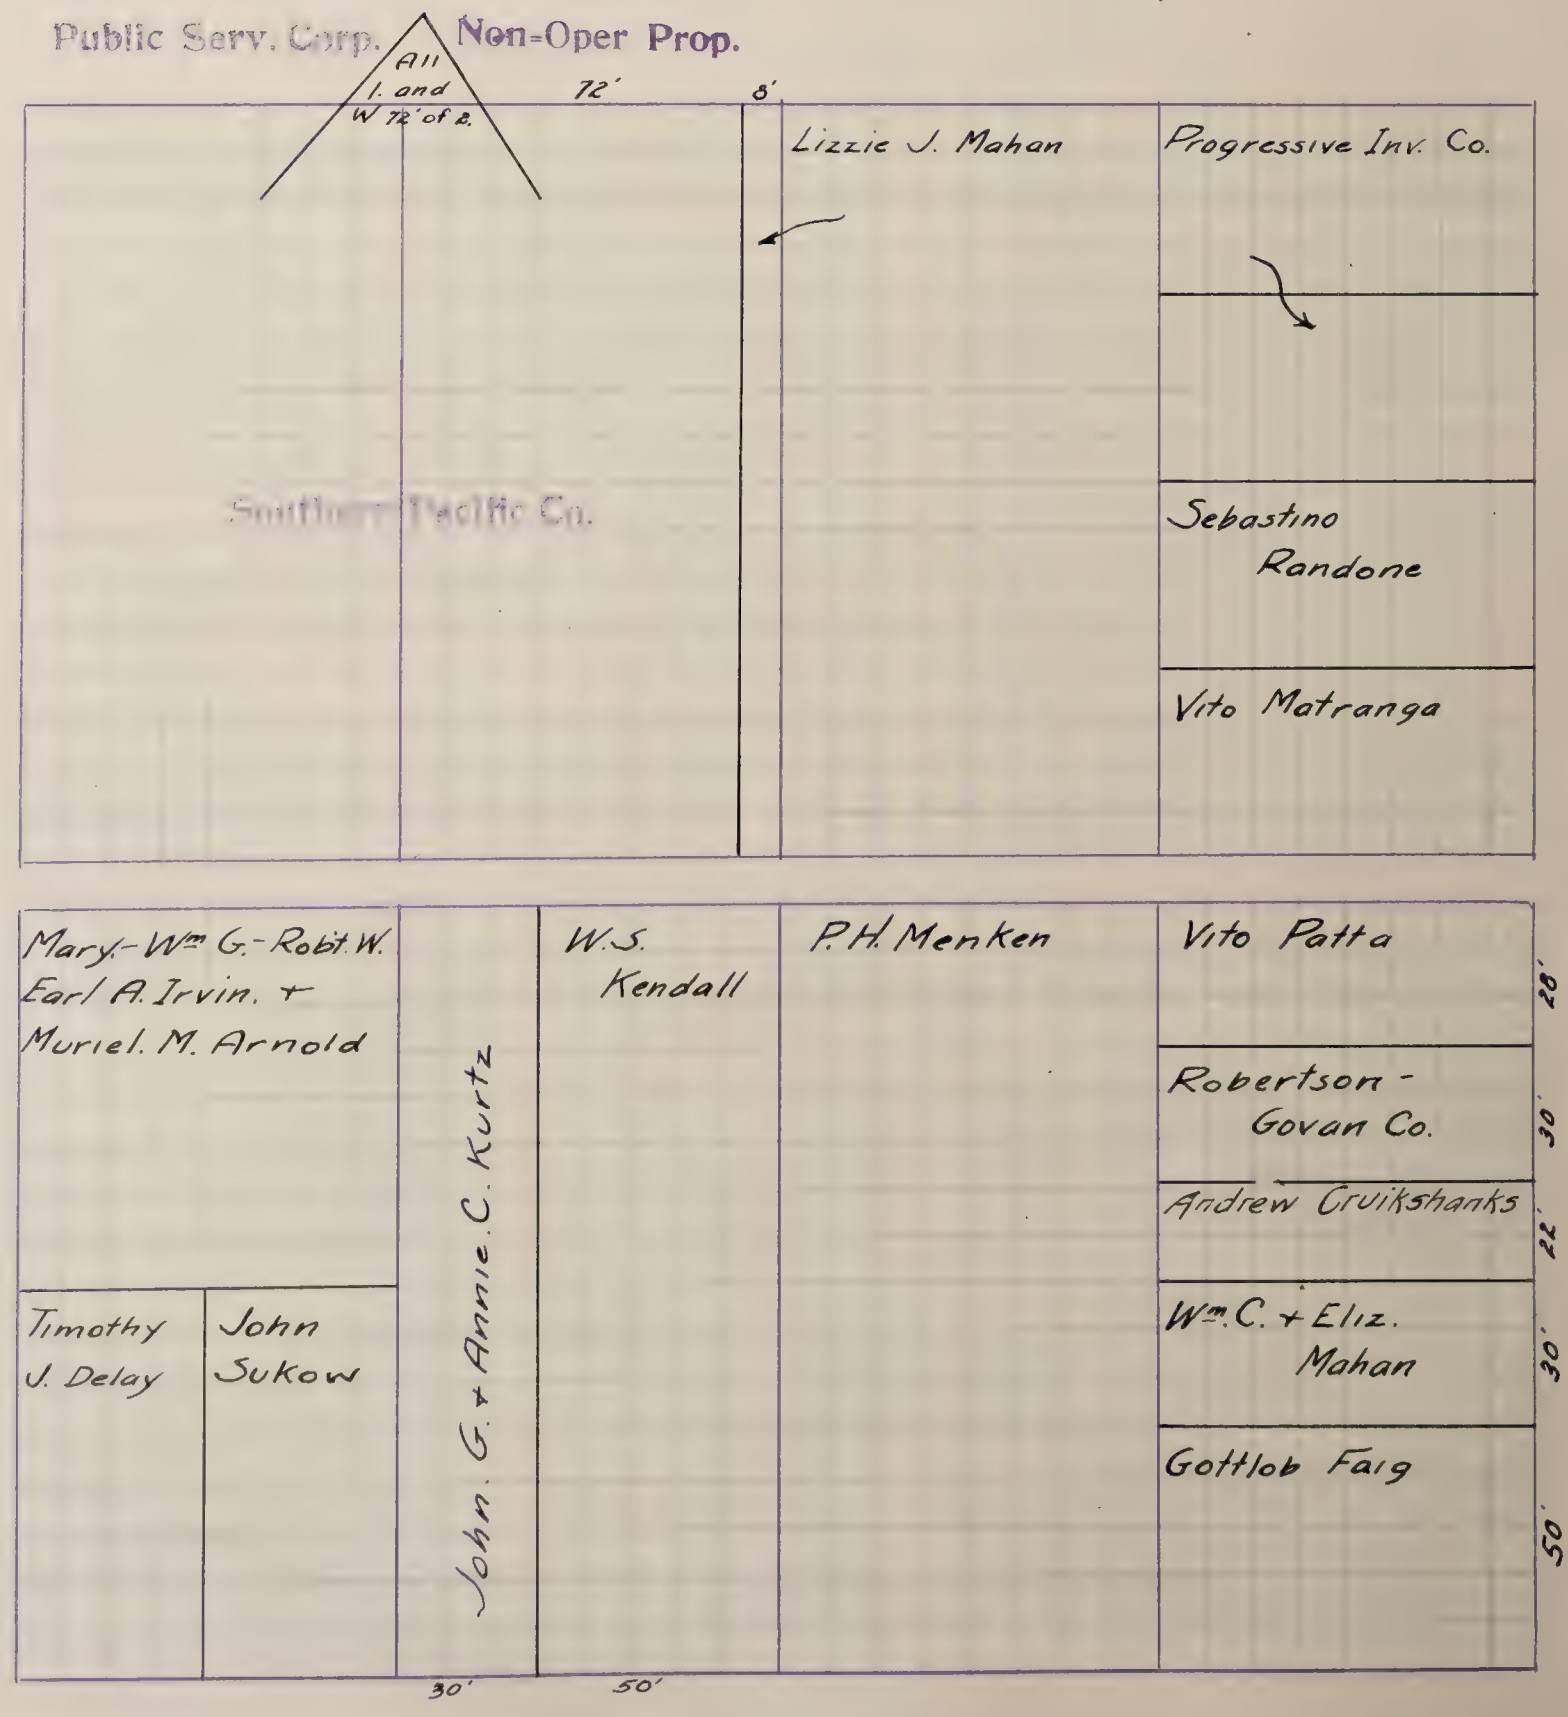 Public Serv. Corp. Non=Oper Prop.
All
1. and
W 72' of 2.
72'
8'
Lizzie J. Mahan
Progressive Inv. Co.
Southern Pacific Co.
Sebastino
Randone
Vito Matranga
Mary.- Wm G.- Robt. W.
Earl A. Irvin. +
Muriel. M. Arnold
Timothy
J. Delay
John
Sukow
John. G. + Annie. C. Kurtz
W. S.
Kendall
P. H. Menken
Vito Patta
28'
Robertson -
Govan Co.
30'
Andrew Cruikshanks
22'
Wm. C. + Eliz.
Mahan
30'
Gottlob Faig
50'
30'
50'